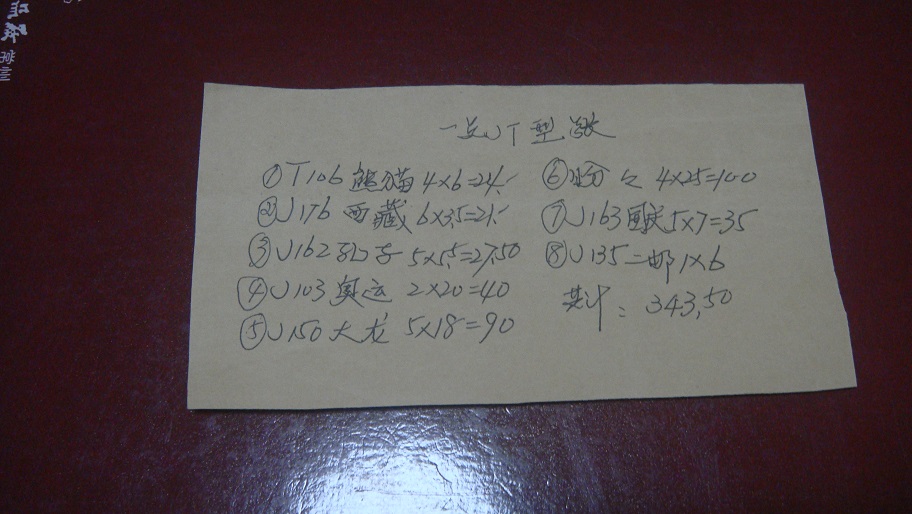 一点JT型张
①T106熊猫 4×6=24.-
②J176 西藏 6×3.5=21.-
③J162孔子 5×5.5=27.50
④J103奥运 2×20=40
⑤J150大龙 5×18=90
⑥ 4×25=100
⑦J163 5×7=35
⑧J135二邮1×6
共计:343.50